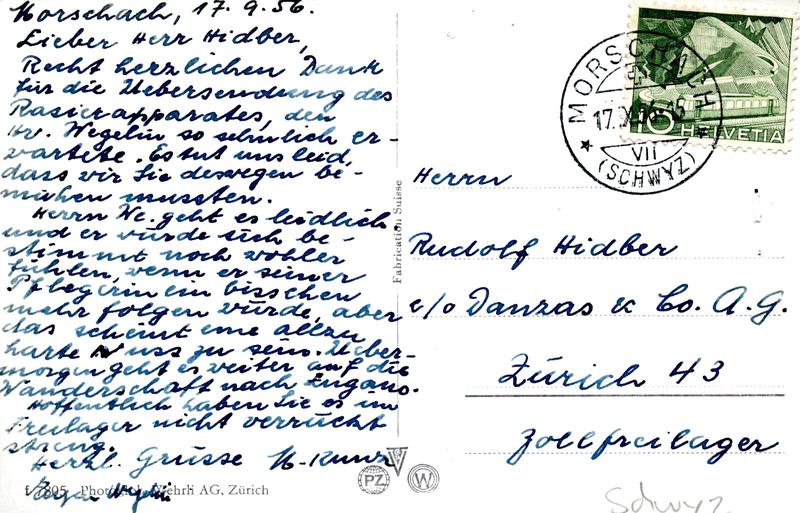 Morschach, 17.9.56.
Lieber Herr Hidber,
Recht herzlichen Dank
für die Uebersendung des
Rasierapparates, den
Hr. Wegelin so sehnlich er-
wartete. Es tut uns leid,
dass wir Sie deswegen be-
mühen mussten.
Herrn We. geht es leidlich
und er würde sich be-
stimmt noch wohler
fühlen, wenn er seiner
Pflegerin ein bisschen
mehr folgen würde, aber
das scheint eine allzu
harte Nuss zu sein. Ueber-
morgen geht es weiter auf die
Wanderschaft nach Lugano.
Hoffentlich haben Sie es im
Freilager nicht verrückt
streng.
Herzl. Grüsse
Fabrication Suisse
MORSCHACH
17.
VII
(SCHWYZ)
10 HELVETIA
Herrn
Rudolf Hidber
c/o Danzas & Co. A.G.
Zürich 43
Zollfreilager
PZ
W
Wehrli AG, Zürich
Schwyz